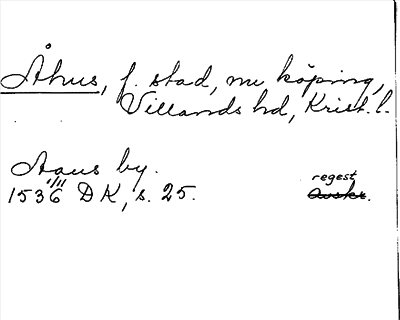 Åhus, f. stad, nu köping,
Villands hd, Krist. l.
Aaus by.
1536 1/11 DK, s. 25.
regest
Avskr.